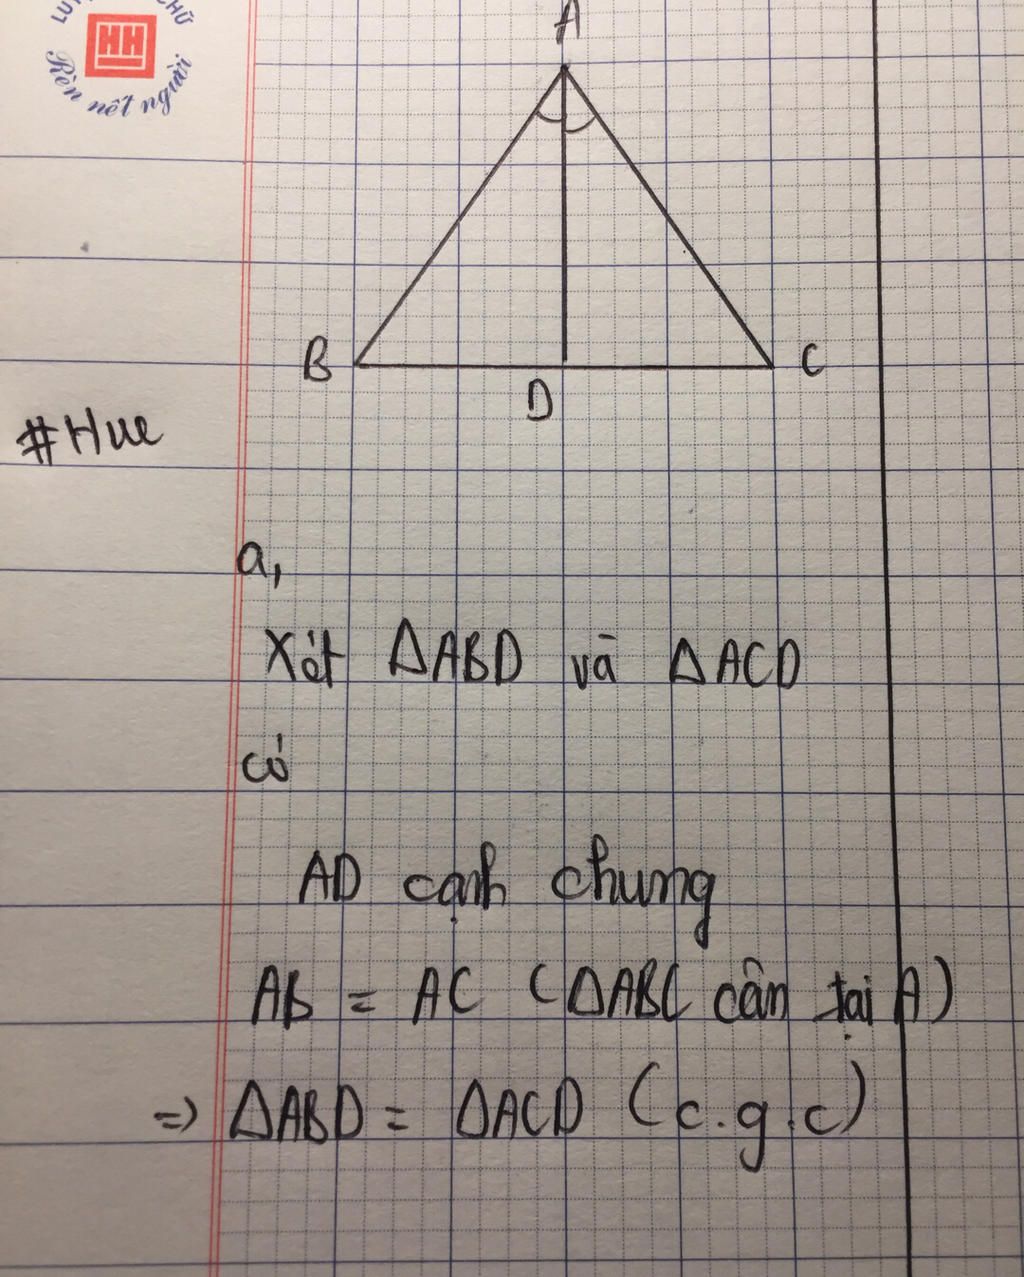 CHỮ
HH
Rèn nết người
A
B
C
D
#Hue
a,
Xét ΔABD và ΔACD
có
AD cạnh chung
AB = AC (ΔABC cân tại A)
=> ΔABD = ΔACD (c.g.c)